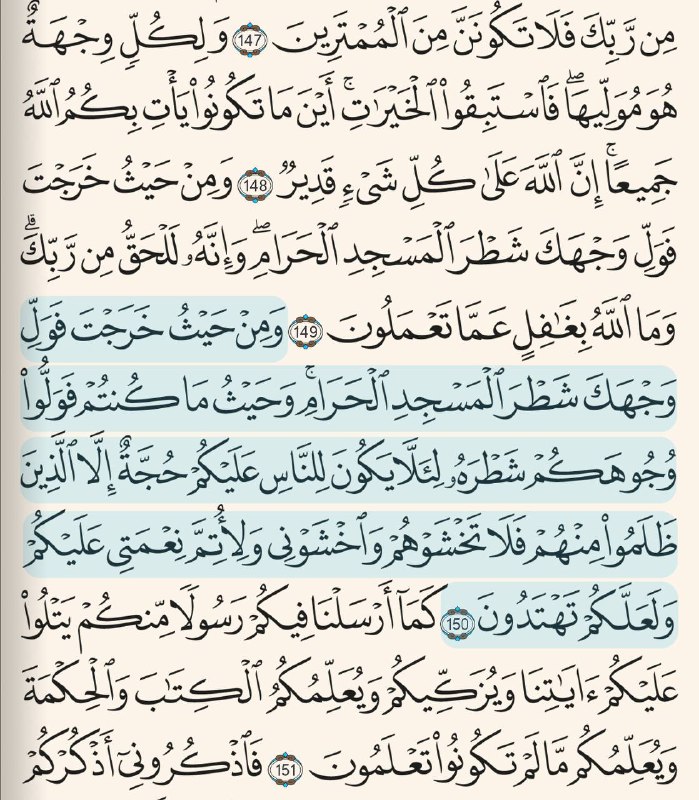 مِن رَّبِّكَ فَلَا تَكُونَنَّ مِنَ ٱلْمُمْتَرِينَ 147 وَلِكُلٍّ وِجْهَةٌ
هُوَ مُوَلِّيهَاۖ فَٱسْتَبِقُوا۟ ٱلْخَيْرَٰتِۚ أَيْنَ مَا تَكُونُوا۟ يَأْتِ بِكُمُ ٱللَّهُ
جَمِيعًاۚ إِنَّ ٱللَّهَ عَلَىٰ كُلِّ شَىْءٍ قَدِيرٌ 148 وَمِنْ حَيْثُ خَرَجْتَ
فَوَلِّ وَجْهَكَ شَطْرَ ٱلْمَسْجِدِ ٱلْحَرَامِۖ وَإِنَّهُۥ لَلْحَقُّ مِن رَّبِّكَۗ
وَمَا ٱللَّهُ بِغَٰفِلٍ عَمَّا تَعْمَلُونَ 149 وَمِنْ حَيْثُ خَرَجْتَ فَوَلِّ
وَجْهَكَ شَطْرَ ٱلْمَسْجِدِ ٱلْحَرَامِۚ وَحَيْثُ مَا كُنتُمْ فَوَلُّوا۟
وُجُوهَكُمْ شَطْرَهُۥ لِئَلَّا يَكُونَ لِلنَّاسِ عَلَيْكُمْ حُجَّةٌ إِلَّا ٱلَّذِينَ
ظَلَمُوا۟ مِنْهُمْ فَلَا تَخْشَوْهُمْ وَٱخْشَوْنِى وَلِأُتِمَّ نِعْمَتِى عَلَيْكُمْ
وَلَعَلَّكُمْ تَهْتَدُونَ 150 كَمَآ أَرْسَلْنَا فِيكُمْ رَسُولًا مِّنكُمْ يَتْلُوا۟
عَلَيْكُمْ ءَايَٰتِنَا وَيُزَكِّيكُمْ وَيُعَلِّمُكُمُ ٱلْكِتَٰبَ وَٱلْحِكْمَةَ
وَيُعَلِّمُكُم مَّا لَمْ تَكُونُوا۟ تَعْلَمُونَ 151 فَٱذْكُرُونِىٓ أَذْكُرْكُمْ